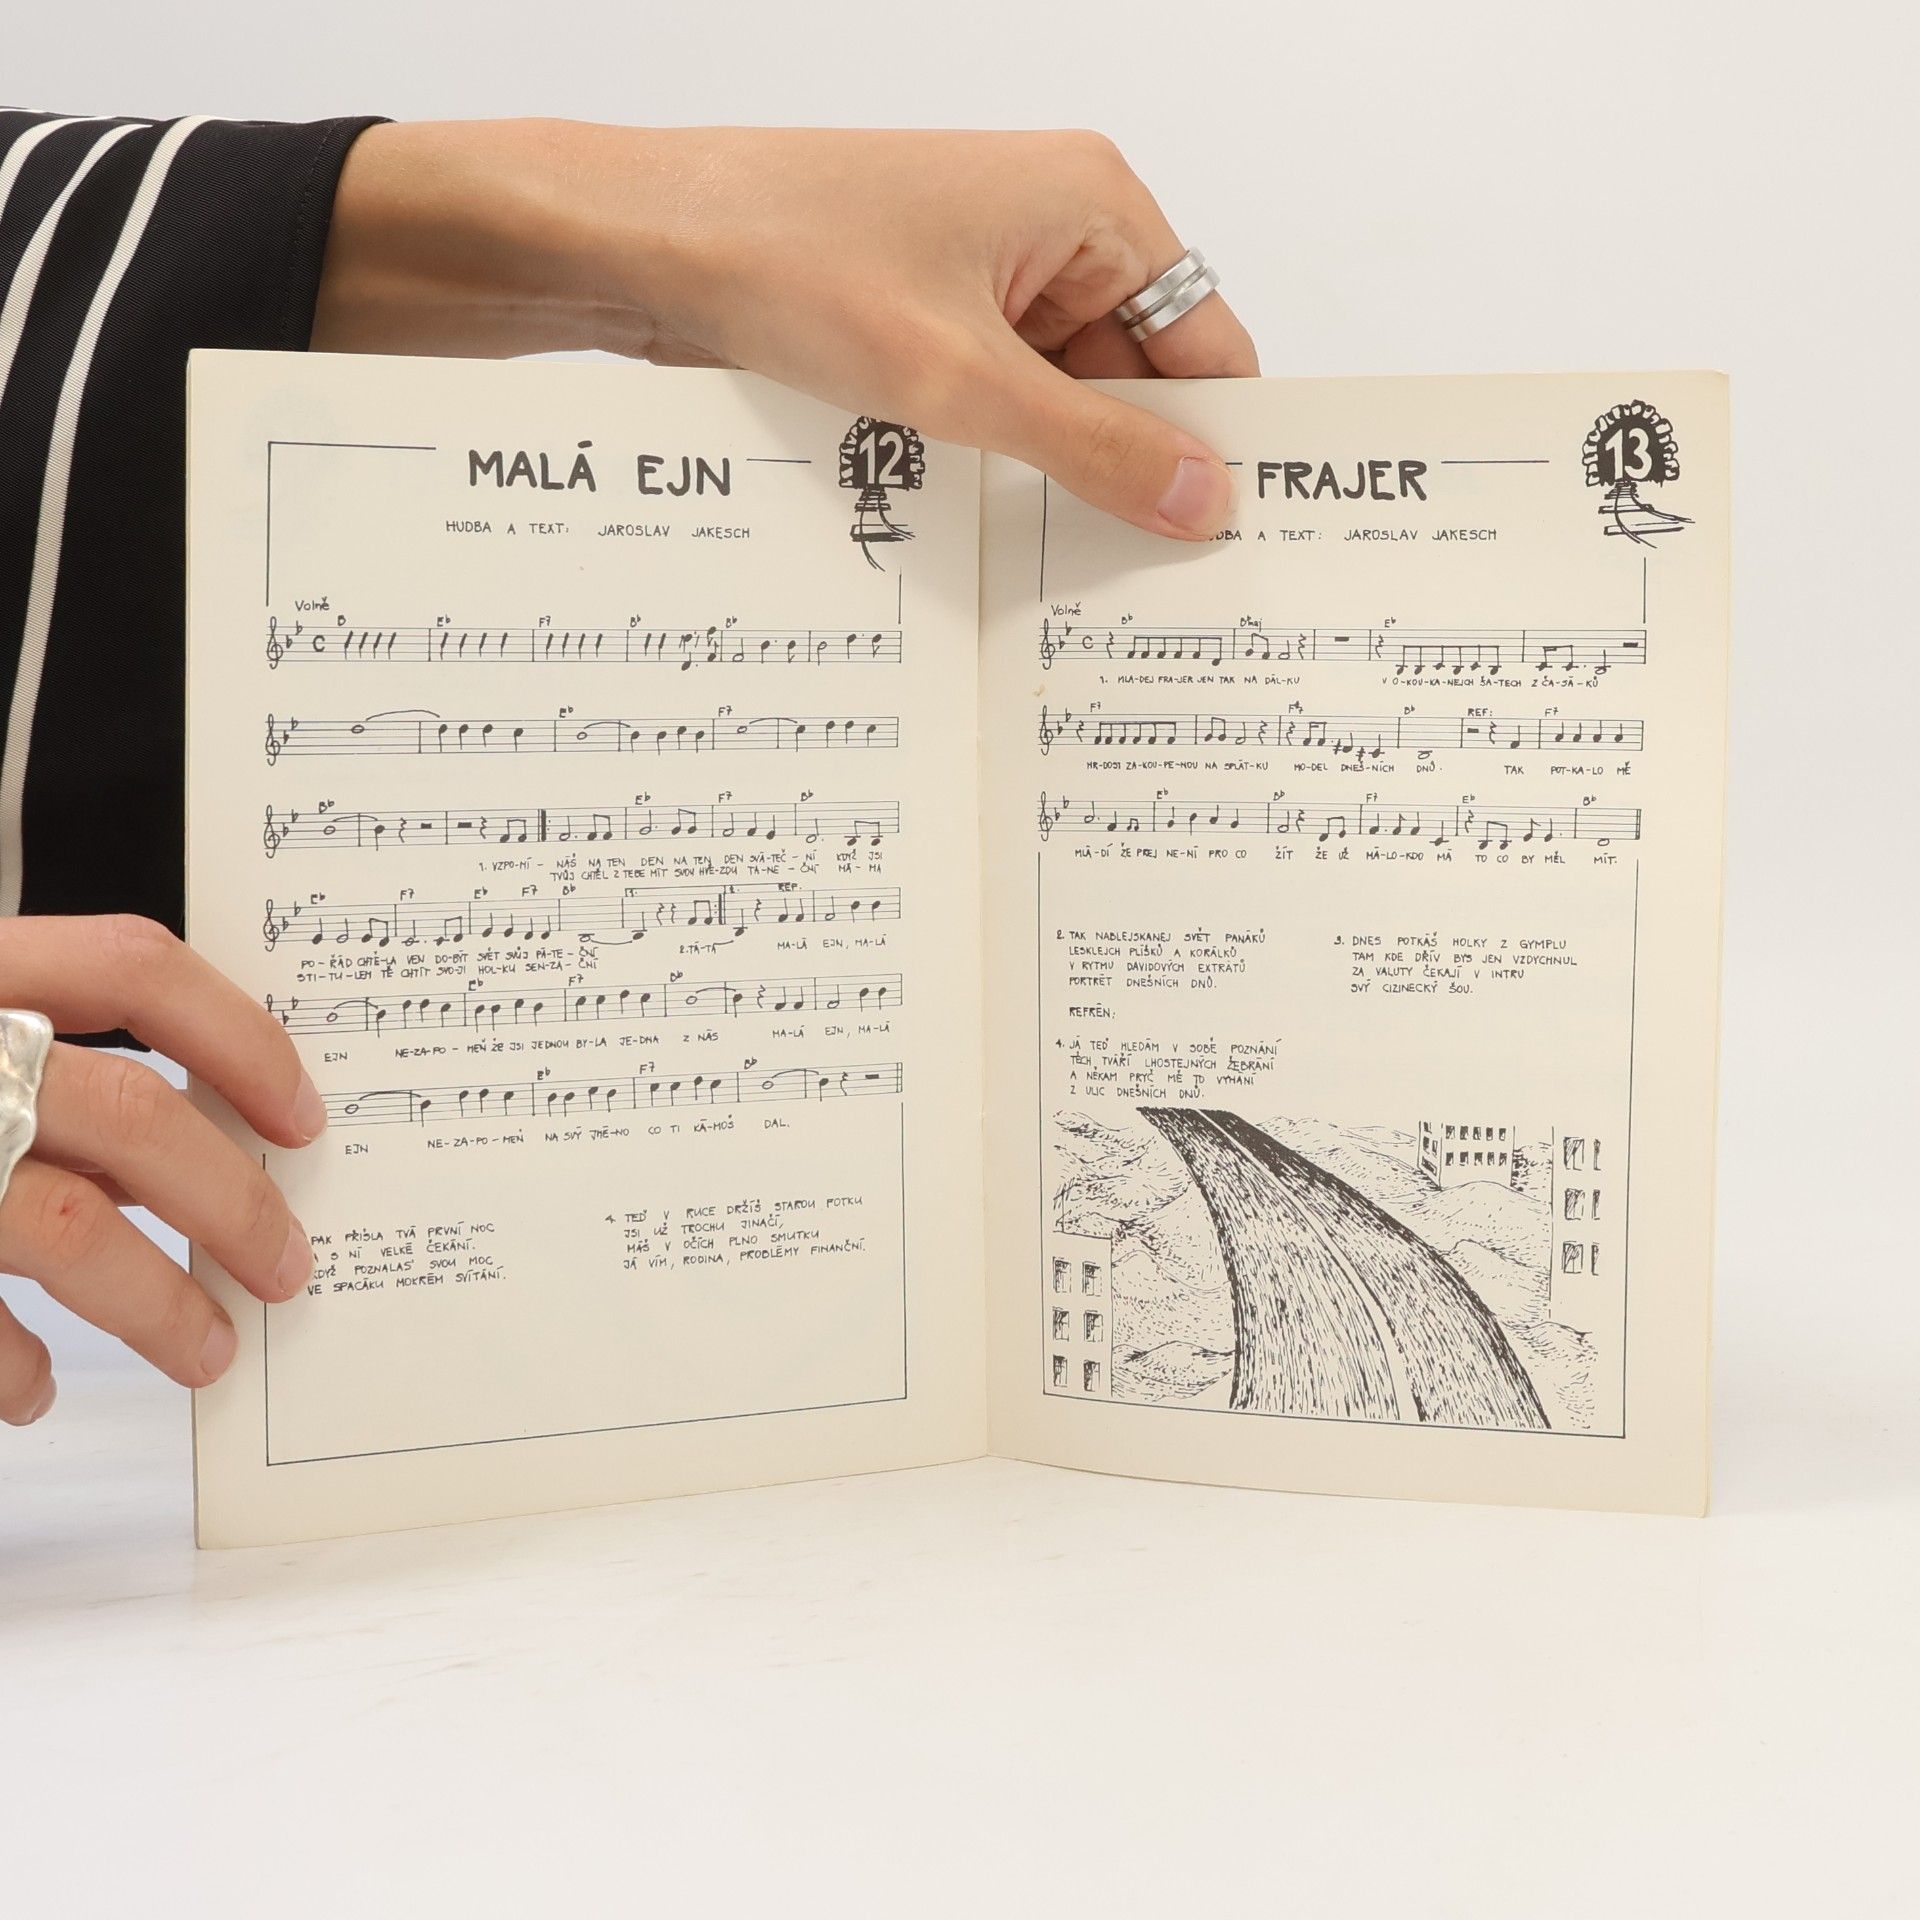 MALÁ EJN
12
HUDBA A TEXT: JAROSLAV JAKESCH
Volně
B Eb F7 Bb Bb
Eb F7
Bb Eb F7 Bb
1. VZPO-MÍ - NÁŠ NA TEN DEN NA TEN DEN SVÁ-TEČ - NÍ KDYŽ JSI
TVŮJ CHTĚL Z TEBE MÍT SVOU HVĚ-ZDU TA-NE - ČNÍ MÁ - MA
Eb F7 Eb F7 Bb 1. 2. REF.
PO - ŘÁD CHTĚ-LA VEN DO-BÝT SVĚT SVŮJ PÁ-TE - ČNÍ 2. TÁ-TA MA-LÁ EJN, MA-LÁ
STI-TU-LEM TĚ CHTÍT SVO-JI HOL-KU SEN-ZA - ČNÍ
Eb F7 Bb
EJN NE-ZA-PO - MEŇ ŽE JSI JEDNOU BY-LA JE-DNA Z NÁS MA-LÁ EJN, MA-LÁ
Eb F7 Bb
EJN NE-ZA-PO-MEŇ NA SVÝ JMÉ-NO CO TI KÁ-MOŠ DAL.
PAK PŘIŠLA TVÁ PRVNÍ NOC
A S NÍ VELKÉ ČEKÁNÍ.
KDYŽ POZNALAS' SVOU MOC
VE SPACÁKU MOKRÉM SVÍTÁNÍ.
4. TEĎ V RUCE DRŽÍŠ STAROU FOTKU
JSI UŽ TROCHU JINAČÍ,
MÁŠ V OČÍCH PLNO SMUTKU
JÁ VÍM, RODINA, PROBLÉMY FINANČNÍ.
FRAJER
13
UDBA A TEXT: JAROSLAV JAKESCH
Volně
Bb Bbmaj Eb
1. MLA-DEJ FRA-JER JEN TAK NA DÁL-KU V O-KOU-KA-NEJCH ŠA-TECH Z ČA-SÁ-KŮ
F7 F7 Bb REF: F7
HR-DOST ZA-KOU-PE-NOU NA SPLÁT-KU MO-DEL DNEŠ-NÍCH DNŮ. TAK POT-KA-LO MĚ
Eb Bb F7 Eb Bb
MLÁ-DÍ ŽE PREJ NE-NÍ PRO CO ŽÍT ŽE UŽ MÁ-LO-KDO MÁ TO CO BY MĚL MÍT.
2. TAK NABLEJSKANEJ SVĚT PANÁKŮ
LESKLEJCH PLÍŠKŮ A KORÁLKŮ
V RYTMU DAVIDOVÝCH EXTRÁTŮ
PORTRÉT DNEŠNÍCH DNŮ.
REFRÉN:
3. DNES POTKÁŠ HOLKY Z GYMPLU
TAM KDE DŘÍV BYS JEN VZDYCHNUL
ZA VALUTY ČEKAJÍ V INTRU
SVÝ CIZINECKÝ ŠOU.
4. JÁ TEĎ HLEDÁM V SOBĚ POZNÁNÍ
TĚCH TVÁŘÍ LHOSTEJNÝCH ŽEBRÁNÍ
A NĚKAM PRYČ MĚ TO VYHÁNÍ
Z ULIC DNEŠNÍCH DNŮ.